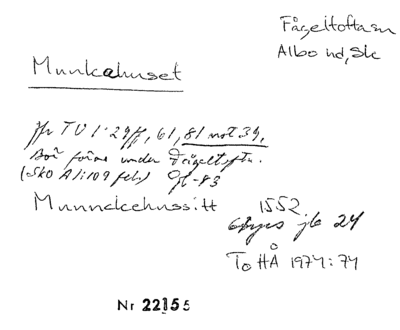 Fågeltofta sn
Albo hd, Sk
Munkahuset
Jfr TU 1:29ff, 61, 81 not 39,
Bör föras under Fågeltofta.
(SkO A1:109 fel)
Munnckehussitt 1552
jb 24
To HÅ 1974:74
Nr 22155